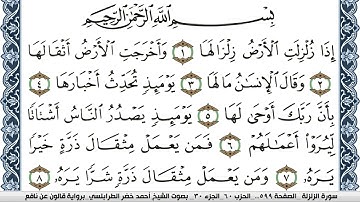 بِسْمِ اللَّهِ الرَّحْمَٰنِ الرَّحِيمِ
إِذَا زُلْزِلَتِ الْأَرْضُ زِلْزَالَهَا ١ وَأَخْرَجَتِ الْأَرْضُ أَثْقَالَهَا
٢ وَقَالَ الْإِنسَٰنُ مَا لَهَا ٣ يَوْمَئِذٍ تُحَدِّثُ أَخْبَارَهَا ٤
بِأَنَّ رَبَّكَ أَوْحَىٰ لَهَا ٥ يَوْمَئِذٍ يَصْدُرُ النَّاسُ أَشْتَاتًا
لِّيُرَوْا أَعْمَٰلَهُمْ ٦ فَمَن يَعْمَلْ مِثْقَالَ ذَرَّةٍ خَيْرًا
يَرَهُۥ ٧ وَمَن يَعْمَلْ مِثْقَالَ ذَرَّةٍ شَرًّا يَرَهُۥ ٨
سورة الزلزلة . الصفحة ٥٩٩ .. الحزب ٦٠ الجزء ٣٠ . بصوت الشيخ أحمد خضر الطرابلسي . برواية قالون عن نافع